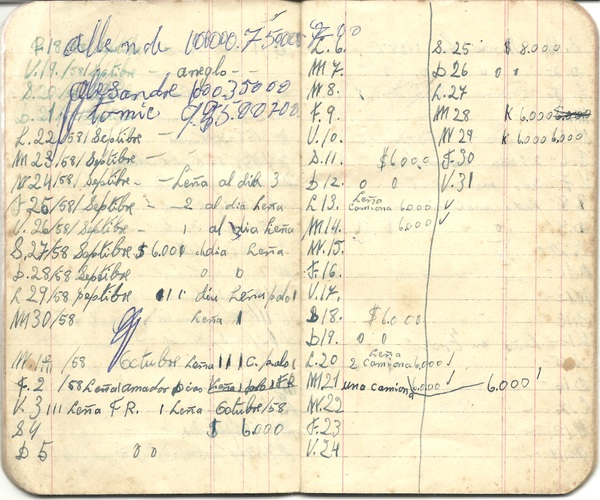 P.18 allende 100000.75000
V.19./58/Septibre - areglo -
alesandre 000.35000
tomic
L.22/58/Septibre -
M 23/58/Septibre - -
M 24/58/Septibre - - Leña al dia 3
J 25/58/Septibre - - 2 al dia Leña
V. 26/58/Septibre - 1 al dia Leña
S.27/58 Septibre $ 6.000 1 dia Leña
D.28/58 Septibre 0 0
L 29/58 septibre 1 1 1 dia Leña palo 1
M 30/58 Leña 1
M. 1 /58 Octubre Leña 1 1 1 C. palo 1
J. 2 /58 Leña amador Dias Leña 1 palo 2 F.R
V. 3 111 Leña F.R. 1 Leña Octubre/58
S 4 $ 6.000
D 5 0 0
L. 6.
M 7.
M 8.
J. 9.
V. 10.
S. 11. $ 6000
D 12. 0 0
L 13. Leña camiona 6.000 ✓
M 14. 6.000 ✓
M. 15.
J. 16.
V. 17.
S 18. $ 6.000
D 19. 0 0
L. 20 Leña 2 camiona 6,000 !
M 21 una camiona 6.000 ! 6.000 !
M. 22
J. 23
V. 24
S. 25 $ 8.000
D 26 0 0
L. 27
M 28 K 6.000 6.000
M 29 K 6.000 6.000
J. 30
V. 31